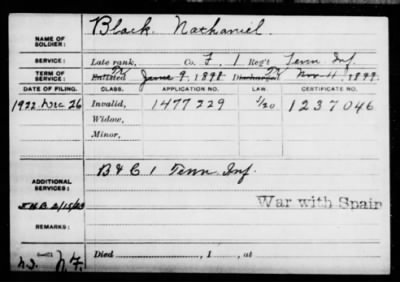 NAME OF SOLDIER: Black, Nathaniel.
SERVICE: Late rank, Co. F, 1 Reg't Tenn Inf.
TERM OF SERVICE: Enlisted June 9, 1898 Discharged Nov 4, 1899.
DATE OF FILING. CLASS. APPLICATION NO. LAW. CERTIFICATE NO.
1922 Dec 26 Invalid, 1477229 6/20 1237046
Widow,
Minor,
ADDITIONAL SERVICES: B & C 1 Tenn. Inf.
War with Spain
REMARKS:
Died , 1 , at